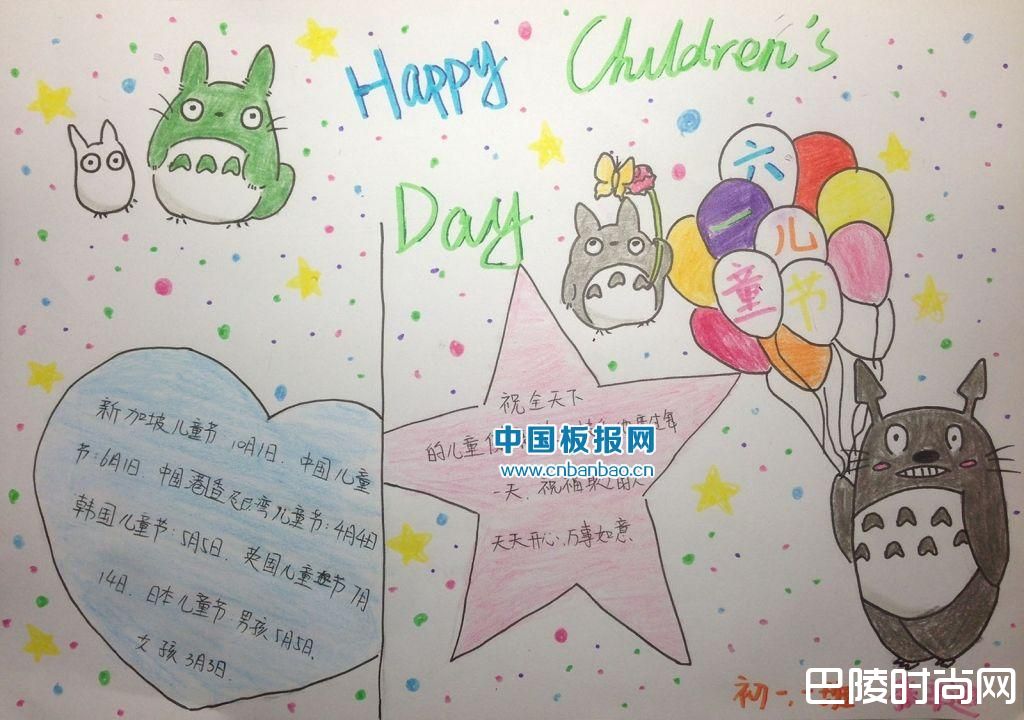 Happy Children's
Day
六
一
儿
童节
新加坡儿童节 10月1日、中国儿童
节:6月1日 中国港 湾儿童节:4月4日
韩国儿童节:5月5日、英国儿童 节7月
14日、日本儿童节:男孩5月5日、
女孩3月3日.
祝全天下
的儿童
一天,祝福
天天开心,万事如意.
中国板报网
www.cnbanbao.cn
初一.
巴陵时尚网